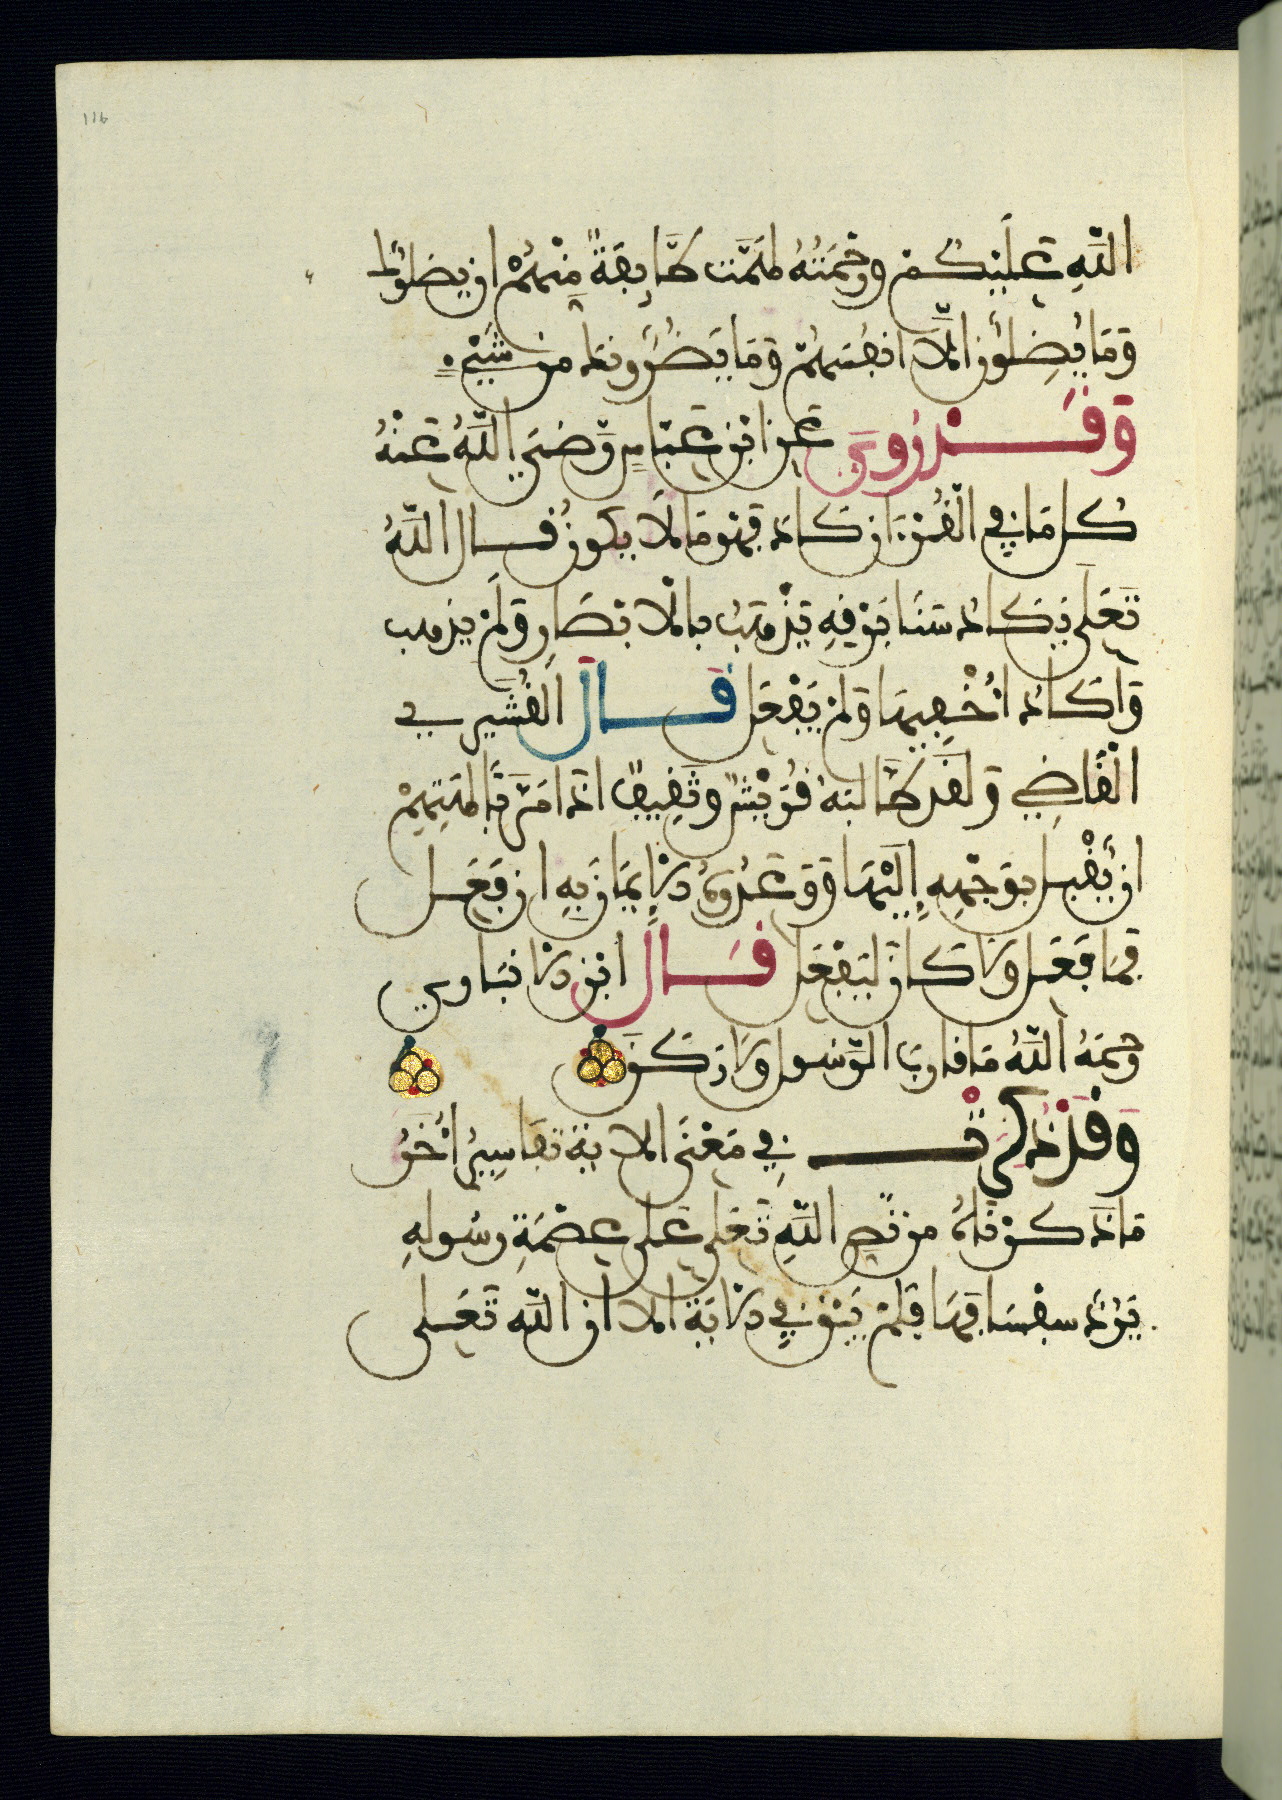 116
اللَّهِ عَلَيْكُمْ وَرَحْمَتُهُ لَهَمَّت طَّائِفَةٌ مِنْهُمْ ان يضلوك
وَمَا يُضِلُّون إلَّا انفُسَهُمْ وَمَا يَضُرُّونك من شَيْءٍ
وَقَدْ رُوِيَ عَن ابْن عَبّاسٍ رَّضِيَ اللَّهُ عَنْهُ
كل مَا فِي الْقُرْءَان كَادَ فَهْوَ مَا لَا يكون قال اللَّهُ
تَعَلَى يَكَادُ سَنَا بَرْقِهِ يَذْهَبُ بالْابْصَارِ وَلَمْ يذهب
وَاكَادُ اخْفِيهَا وَلَمْ يَفْعَل قَال القُشَيْرِي
الْقَاضِي وَلَقَد طَالبَهُ قُرَيْشٌ وثَقِيفٌ اذ مَرَّ بَآلهَتِهِمْ
ان يُقْبل بوَجْهِهِ إلَيْهَا وَوَعَدُوهُ الإيمَان بِهِ ان فَعَل
فمَا فَعَل ولا كَان لِيَفْعَل قَال ابْن الانبَاري
رحمَهُ اللَّهُ مَا قارب الرَّسُول ولا رَكَن
وَقَدْ ذُكِرَتْ فِي مَعْنَى الاية تفَاسِيرُ اخَرُ
مَا ذَكَرْنَاهُ من نَّصِ اللَّهِ تَعَلَى عَلَى عِصْمَةِ رسُولهِ
يَرُدُّ سفْسَافهَا فَلَمْ يَبْقَ فِي الايَة الا ان اللَّه تَعَلى